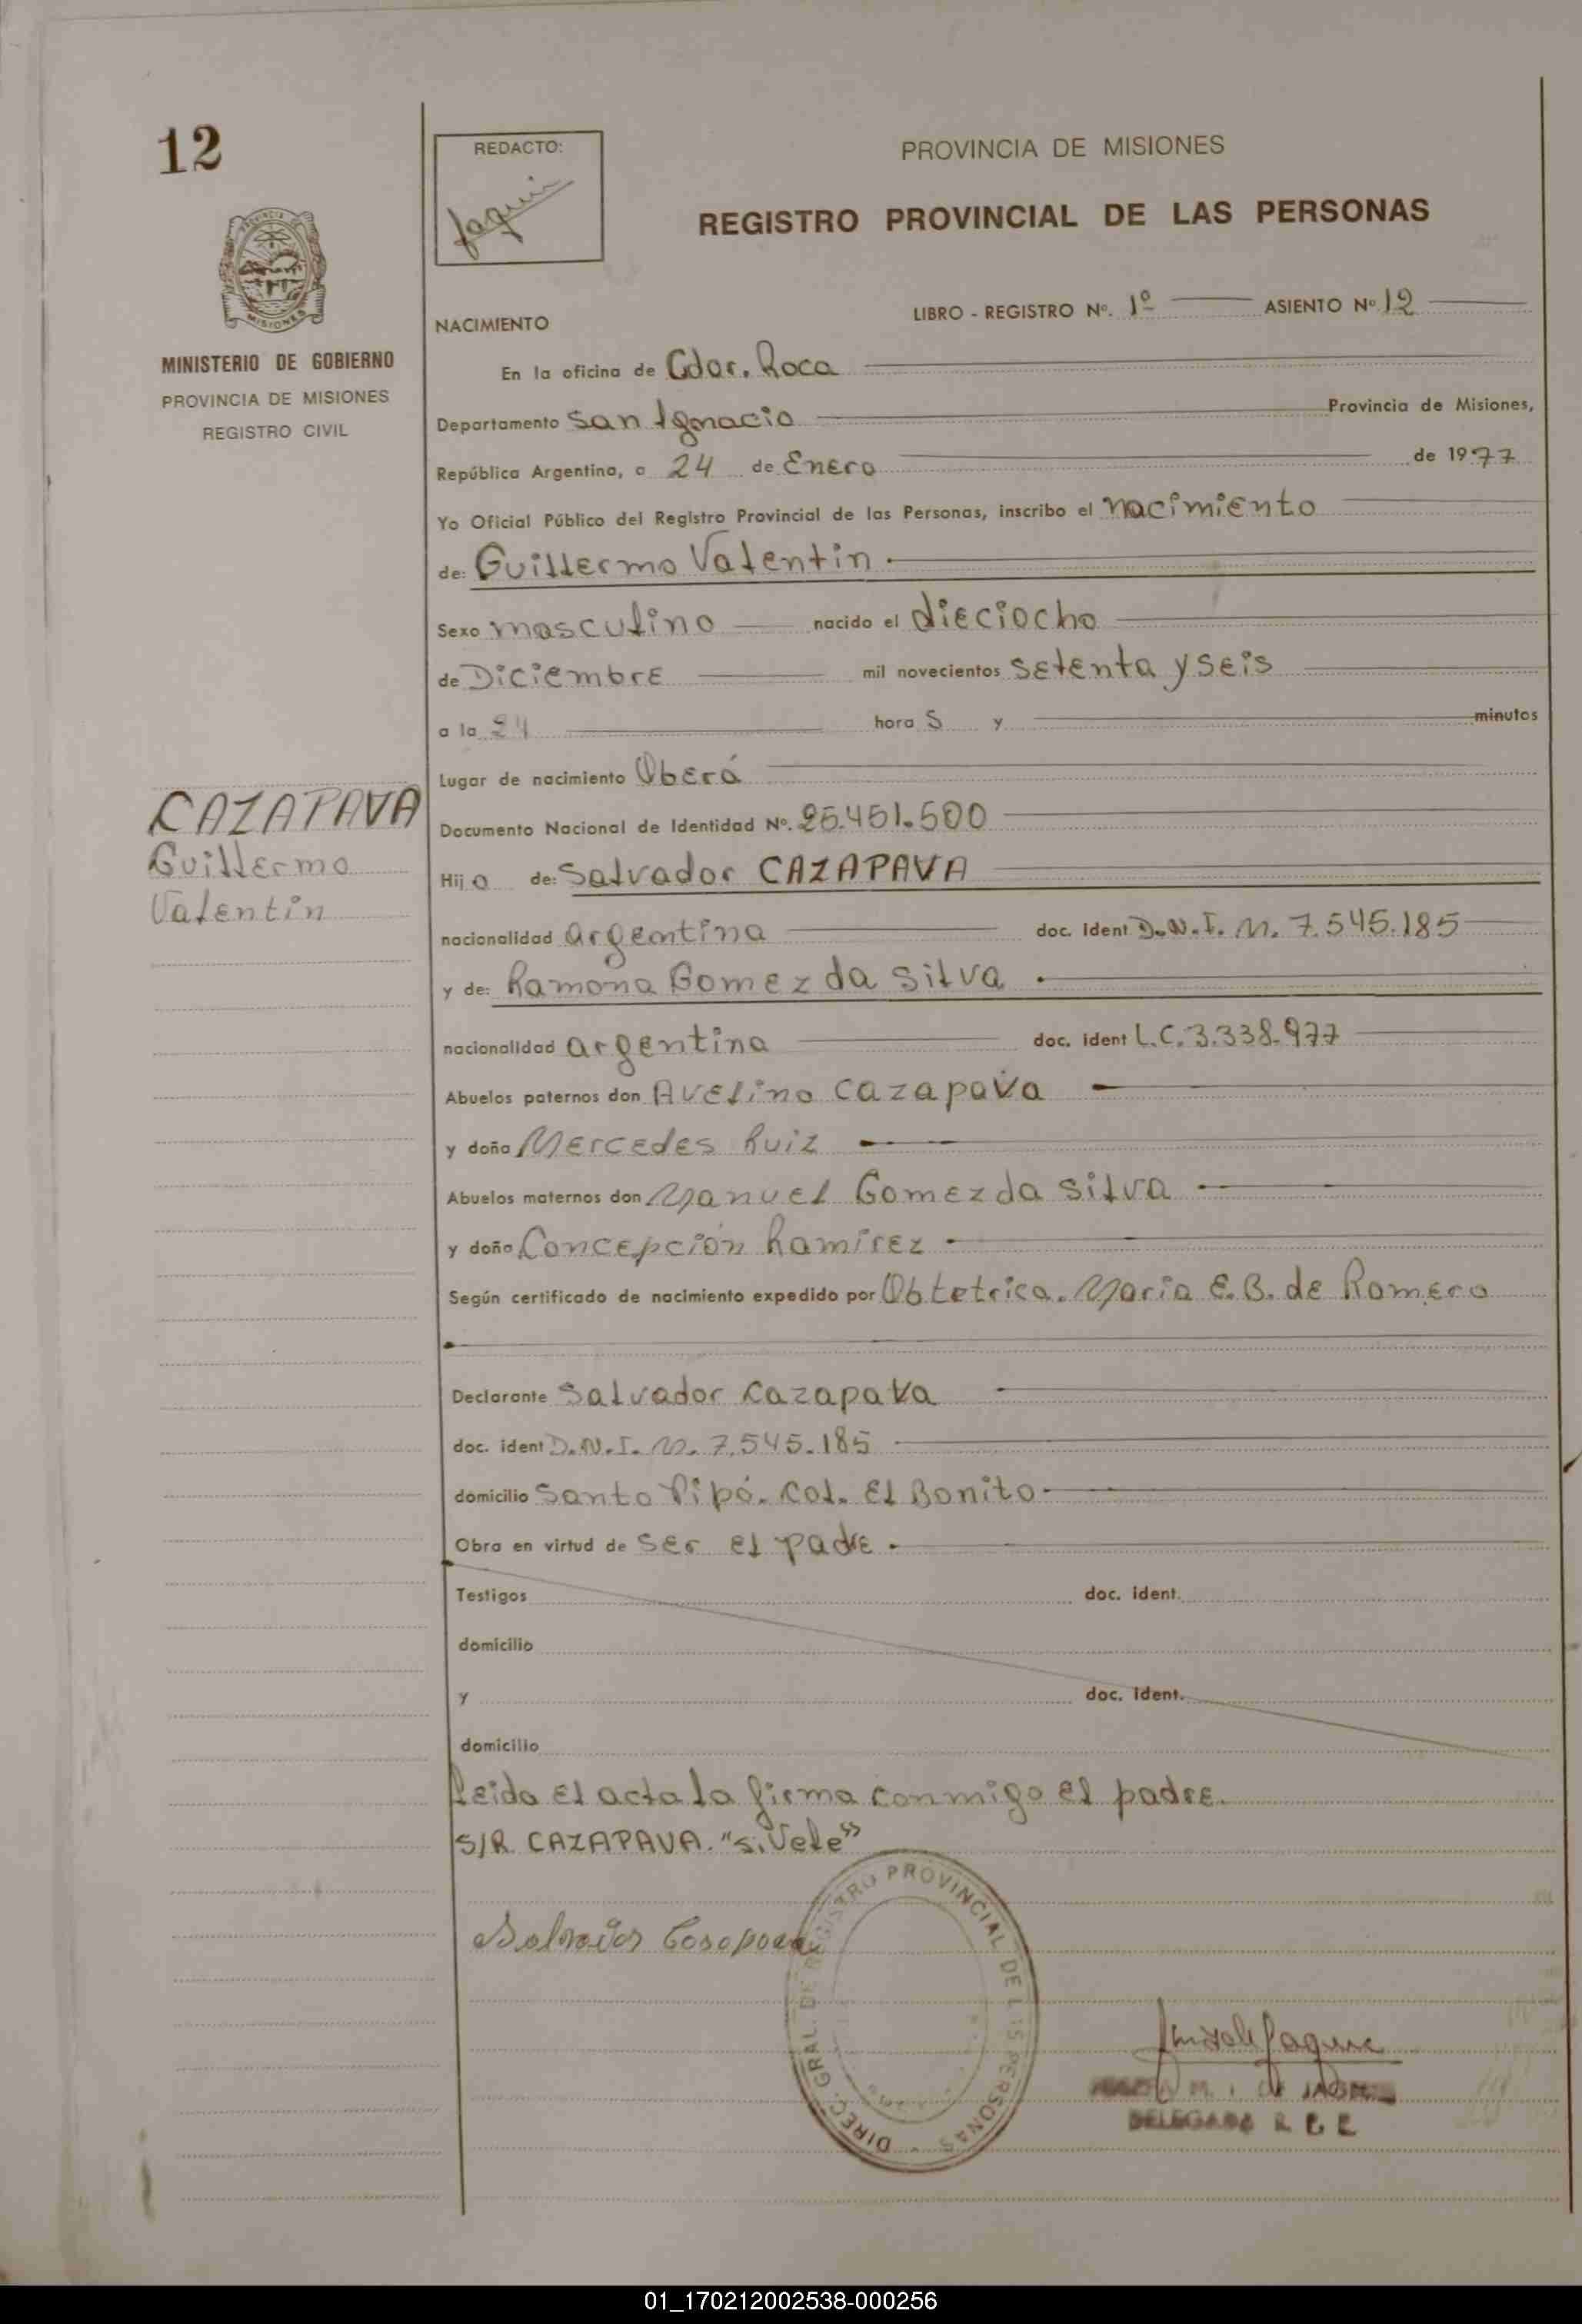 12
REDACTO:
Jaquin
PROVINCIA DE MISIONES
REGISTRO PROVINCIAL DE LAS PERSONAS
MINISTERIO DE GOBIERNO
PROVINCIA DE MISIONES
REGISTRO CIVIL
LIBRO - REGISTRO Nº. 1º ASIENTO Nº 12
NACIMIENTO
En la oficina de Gdor. Roca
Departamento San Ignacio Provincia de Misiones,
República Argentina, a 24 de Enero de 1977
Yo Oficial Público del Registro Provincial de las Personas, inscribo el nacimiento
de: Guillermo Valentin.
Sexo masculino nacido el dieciocho
de Diciembre mil novecientos setenta y seis
a la 24 hora s y minutos
Lugar de nacimiento Oberá
CAZAPAVA
Guillermo
Valentin
Documento Nacional de Identidad Nº. 25.451.500
Hij o de: Salvador CAZAPAVA
nacionalidad argentina doc. ident D.N.I. M. 7.545.185
y de: Ramona Gomez da Silva .
nacionalidad argentina doc. ident L.C. 3.338.977
Abuelos paternos don Avelino Cazapava
y doña Mercedes Ruiz
Abuelos maternos don Manuel Gomez da Silva
y doña Concepción Ramirez .
Según certificado de nacimiento expedido por Obtetrica. Maria E.B. de Romero
Declarante Salvador Cazapava
doc. ident D.N.I. M. 7.545.185
domicilio Santo Pipó. Col. El Bonito
Obra en virtud de ser el padre .
Testigos doc. ident.
domicilio
y doc. ident.
domicilio
Leida el acta la firma conmigo el padre.
S/R. CAZAPAVA. "s. Vele"
Salvador Cazapava
DIREC. GRAL. DE REGISTRO PROVINCIAL DE LAS PERSONAS
DELEGADA
01_170212002538-000256